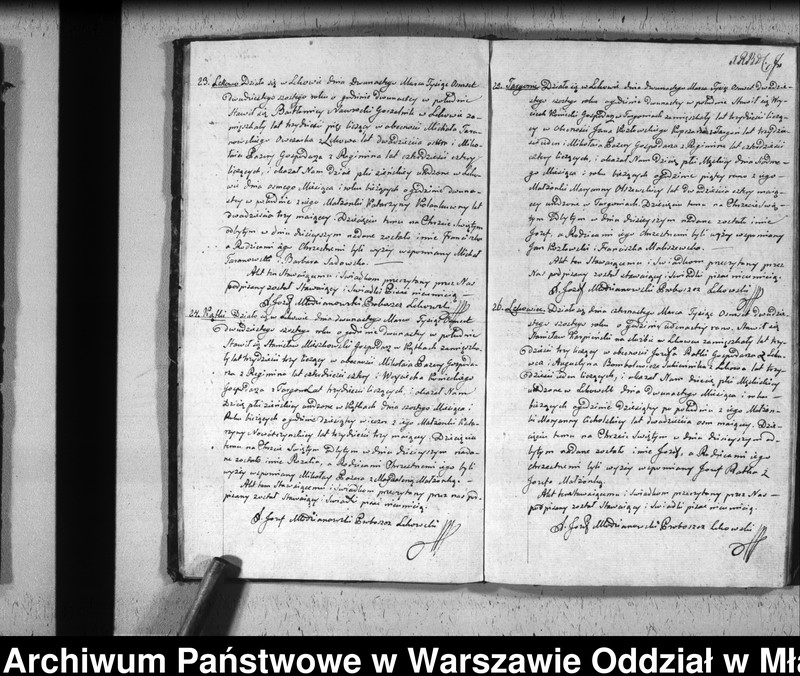 23. Lekowo Działo się w Lekowie dnia dwunastego Marca Tysiąc Osmset
dwudziestego szostego roku o godzinie dwunastey w południe
Stawił się Bartłomiey Nawrocki Gorzelnik w Lekowie za-
mięszkały lat trzydzieści pięć liczący w obecności Michała Tara-
nowskiego Owczarza z Lekowa lat dwadzieścia i Miko-
łaia Bozeny Gospodarza z Regimina lat czterdzieści cztery
liczących, i okazał Nam dziecię płci zińskiey urodzone w Leko-
wie dnia osmego Miesiąca i roku bieżących o godzinie dwuna-
stey w południe z iego Małżonki Katarzyny lat
dwadzieścia trzy maiącey. Dziecięciu temu na Chrzcie Swiętym
odbytym w dniu dzisieyszym nadane zostało imie Franciszka
a Rodzicami iego Chrzestnemi byli wyżey wspomniony Michał
Taranowski i Barbara Sadowska.
Akt ten Stawaiącemu i Swiadkom przeczytany przez Nas
podpisany został Stawaiący i Swiadki pisać nieumieią.
X. Jozef Młodzianowski Proboszcz Lekowski
24. Kątki Działo się w Lekowie dnia dwunastego Marca Tysiąc Osmset
dwudziestego szostego roku o godzinie dwunastey w południe
Stawił się Stanisław Miszkowski Gospodarz w Kątkach zamięszka-
ły lat trzydzieści trzy liczący w obecności Mikołaia Bozeny Gospoda-
rza z Regimina lat czterdzieści cztery i Woyciecha
Gospodarza z Targonia lat trzydzieści liczących, i okazał Nam
Dziecię płci zińskiey urodzone w Kątkach dnia szostego Miesiąca i
Roku bieżących o godzinie dziesiątey wieczor z iego Małżonki Kata-
rzyny lat trzydzieści trzy maiącey. Dziecięciu
temu na Chrzcie Swiętym Odbytym w dniu dzisieyszym nada-
ne zostało imie Rozalia, a Rodzicami Chrzestnemi iego byli
wyżey wspomniony Mikołay Bozena z Magdaleną Małżonką.
Akt ten Stawaiącemu i Swiadkom przeczytany przez nas pod-
pisany został Stawaiący i Swiadki pisać nieumieią.
X. Jozef Młodzianowski Proboszcz Lekowski
25. Targonie Działo się w Lekowie dnia dwunastego Marca Tysiąc Osmset dwudzie-
stego szostego roku o godzinie dwunastey w południe Stawił się Woy-
ciech Gospodarz w Targoniach zamięszkały lat trzydzieści liczą-
cy w obecności Jana Kozłowskiego z Targoń lat trzydzie-
ści ieden i Mikołaia Bozeny Gospodarza z Regimina lat czterdzieści
cztery liczących, i okazał Nam Dziecię płci Męzkiey dnia Siodme-
go Miesiąca i roku bieżących o godzinie piątey rano z iego
Małżonki Maryanny Olszewskiey lat dwadzieścia cztery maią-
cey urodzone w Targoniach. Dziecięciu temu na Chrzcie Swię-
tym Odbytym w dniu dzisieyszym nadane zostało imie
Jozef, a Rodzicami iego Chrzestnemi byli wyżey wspomniony
Jan Kozłowski i Franciszka Maliszewska.
Akt ten Stawaiącemu i Swiadkom przeczytany przez
Nas podpisany został Stawaiący i Swiadki pisać nieumieią.
X. Jozef Młodzianowski Proboszcz Lekowski
26. Działo się dnia czternastego Marca Tysiąc Osmset dwudzie-
stego szostego roku o godzinie rano, Stawił się
Stanisław Karpinski na służbie w Lekowie zamięszkały lat trzy-
dzieści trzy liczący w obecności Jozefa Ratki Gospodarza z Leko-
wa i Augustyna z Lekowa lat trzy-
dzieści liczących, i okazał Nam dziecię płci Męzkiey
urodzone w Lekowie dnia Dwunastego Miesiąca i roku
bieżących o godzinie dziesiątey po południu z iego Małżon-
ki Maryanny Cicholskiey lat dwadzieścia osm maiącey. Dzie-
cięciu temu na Chrzcie Swiętym w dniu dzisieyszym od-
bytym nadane zostało imie Jozef, a Rodzicami iego
chrzestnemi byli wyżey wspomniony Jozef Ratka z
Jozefą Małżonką.
Akt ten Stawaiącemu i Swiadkom przeczytany przez Nas
podpisany został Stawaiący i Swiadki pisać nieumieią.
X. Jozef Młodzianowski Proboszcz Lekowski
Archiwum Państwowe w Warszawie Oddział w Mła